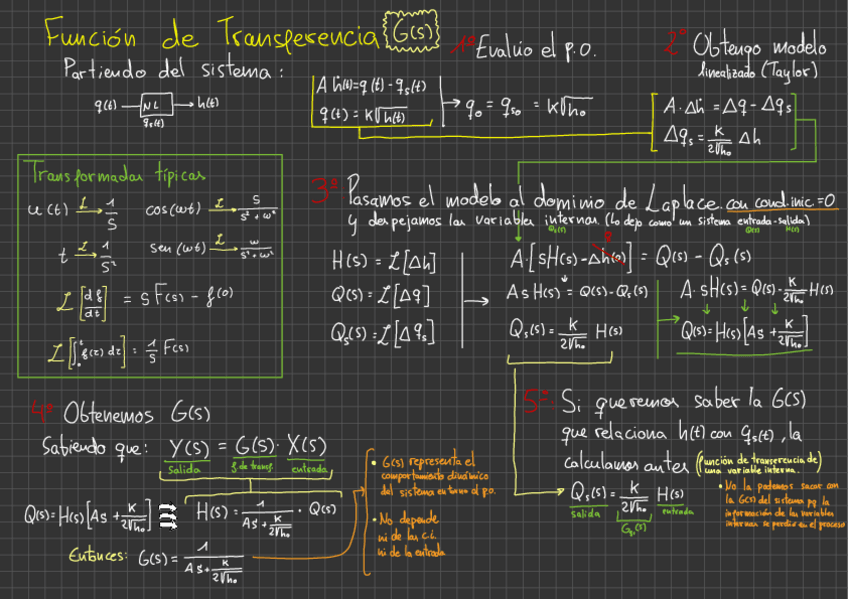 Función de Transferencia G(s)
Partiendo del sistema:
q(t) → NL → h(t)
qs(t)
A ḣ(t) = q(t) - qs(t)
q(t) = K√h(t)
1º Evalúo el p.o.
→ q₀ = qs₀ = K√h₀
2º Obtengo modelo
linealizado (Taylor)
A·Δḣ = Δq - Δqs
Δqs = K/(2√h₀) Δh
Transformadas típicas
u(t) →ℒ 1/s
cos(ωt) →ℒ s/(s²+ω²)
t →ℒ 1/s²
sen(ωt) →ℒ ω/(s²+ω²)
ℒ[df/dt] = s F(s) - f(0)
ℒ[∫₀ᵗ f(τ) dτ] = 1/s F(s)
3º Pasamos el modelo al dominio de Laplace con cond. inic. = 0
y despejamos las variables internas (Lo dejo como un sistema entrada-salida)
Qs(s) Q(s) H(s)
H(s) = ℒ[Δh]
Q(s) = ℒ[Δq]
Qs(s) = ℒ[Δqs]
A·[sH(s) - Δh(0)] = Q(s) - Qs(s)
A s H(s) = Q(s) - Qs(s)
Qs(s) = K/(2√h₀) H(s)
A·sH(s) = Q(s) - K/(2√h₀) H(s)
Q(s) = H(s)[As + K/(2√h₀)]
4º Obtenemos G(s)
Sabiendo que: Y(s) = G(s)·X(s)
salida f. de transf. entrada
Q(s) = H(s)[As + K/(2√h₀)] ≡ H(s) = 1/(As + K/(2√h₀)) · Q(s)
Entonces: G(s) = 1/(As + K/(2√h₀))
• G(s) representa el
comportamiento dinámico
del sistema en torno al p.o.
• No depende
ni de las c.i.
ni de la entrada
5º: Si queremos saber la G(s)
que relaciona h(t) con qs(t), la
calculamos antes (función de transferencia de
una variable interna.
Qs(s) = K/(2√h₀) H(s)
salida Gqs(s) entrada
• No la podemos sacar con
la G(s) del sistema pq la
información de las variables
internas se pierde en el proceso